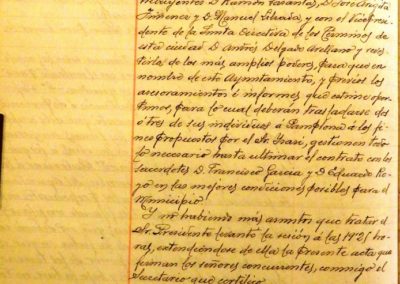 D. Ramón Tarantas, D. José Angda
Jimenez y D. Manuel Estrada, y con el Vicepresi-
dente de la Junta Ejecutiva de los Caminos de
esta ciudad D. Andrés Delgado Arellano y reves-
tirla de los más amplios poderes, para que en
nombre de este Ayuntamiento, y previos los
asesoramientos é informes que estime opor-
tunos, para lo cual deberán trasladarse dos
ó tres de sus individuos á Pamplona á los fi-
nes propuestos por el Sr. gestionen todo
lo necesario hasta ultimar el contrato con los
sacerdotes D. Francisco Garcia y D. Eduardo
en las mejores condiciones posibles para el
Municipio.
Y no habiendo más asuntos que tratar el
Sr. Presidente levantó la sesión á las ho-
ras, extendiéndose de ella la presente acta que
firman los señores concurrentes, conmigo el
Secretario que certifico.